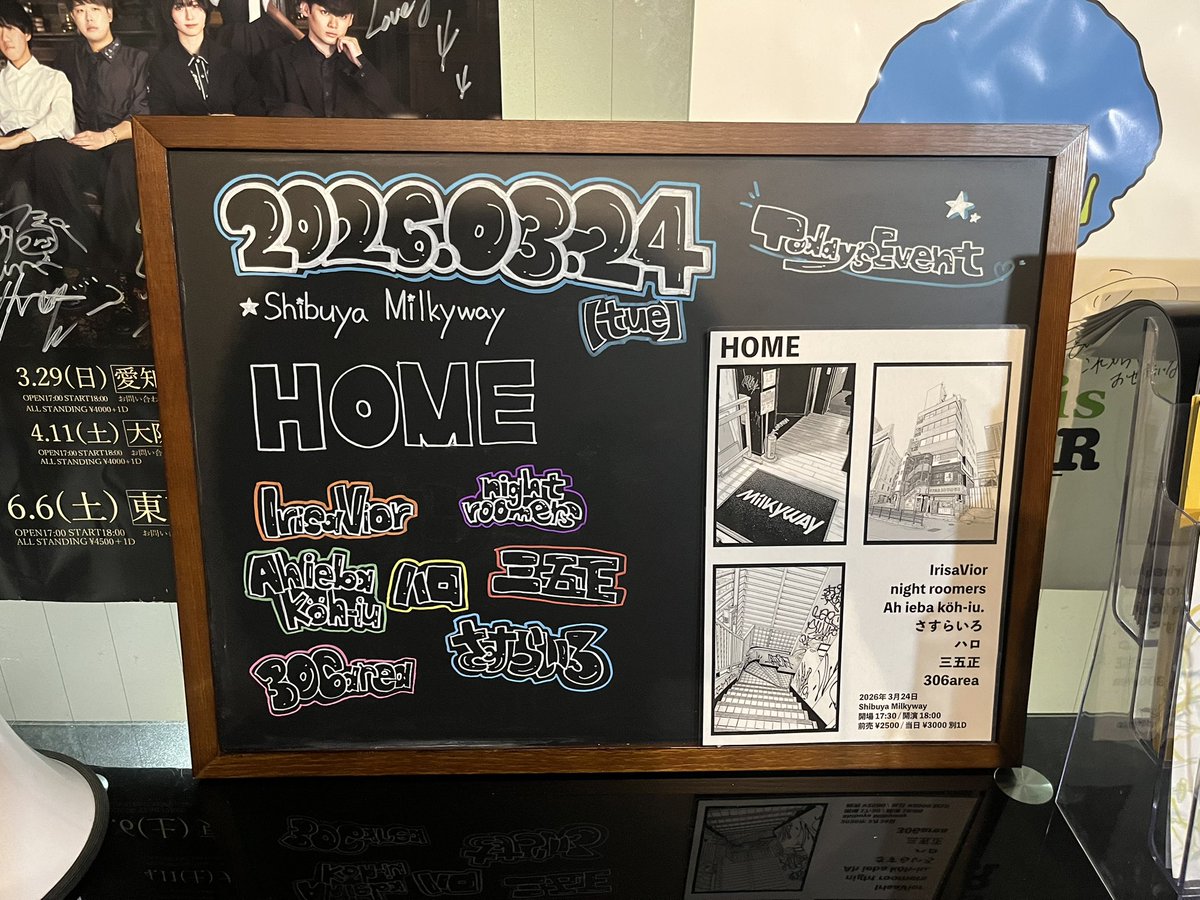 Love
3.29(日) 愛知
OPEN17:00 START18:00 お問い合わ
ALL STANDING ¥4000+1D
4.11(土) 大阪
OPEN17:00 START18:00 お問い合
ALL STANDING ¥4000+1D
6.6(土) 東
OPEN17:00 START18:00 お問い
ALL STANDING ¥4500+1D
2026.03.24
[tue]
Today's Event
Shibuya Milkyway
HOME
IrisaVior
night roomers
Ah ieba köh-iu
ハロ
三五正
306area
さすらいろ
HOME
MILKYWAY
IrisaVior
night roomers
Ah ieba köh-iu.
さすらいろ
ハロ
三五正
306area
2026年 3月24日
Shibuya Milkyway
開場 17:30 / 開演 18:00
前売 ¥2500 / 当日 ¥3000 別1D
is
R